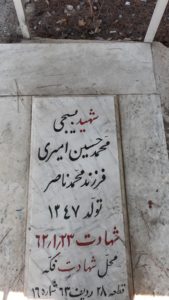 شهید بسیجی
محمد حسین امیری
فرزند محمد ناصر
تولد ۱۳۴۷
شهادت ۶۲/۱/۲۳
محل شهادت فکه
قطعه ۲۸ ردیف ۶۳ شماره ۱۶